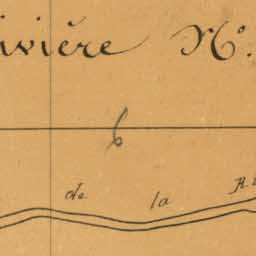 ivière No.
6
de la R